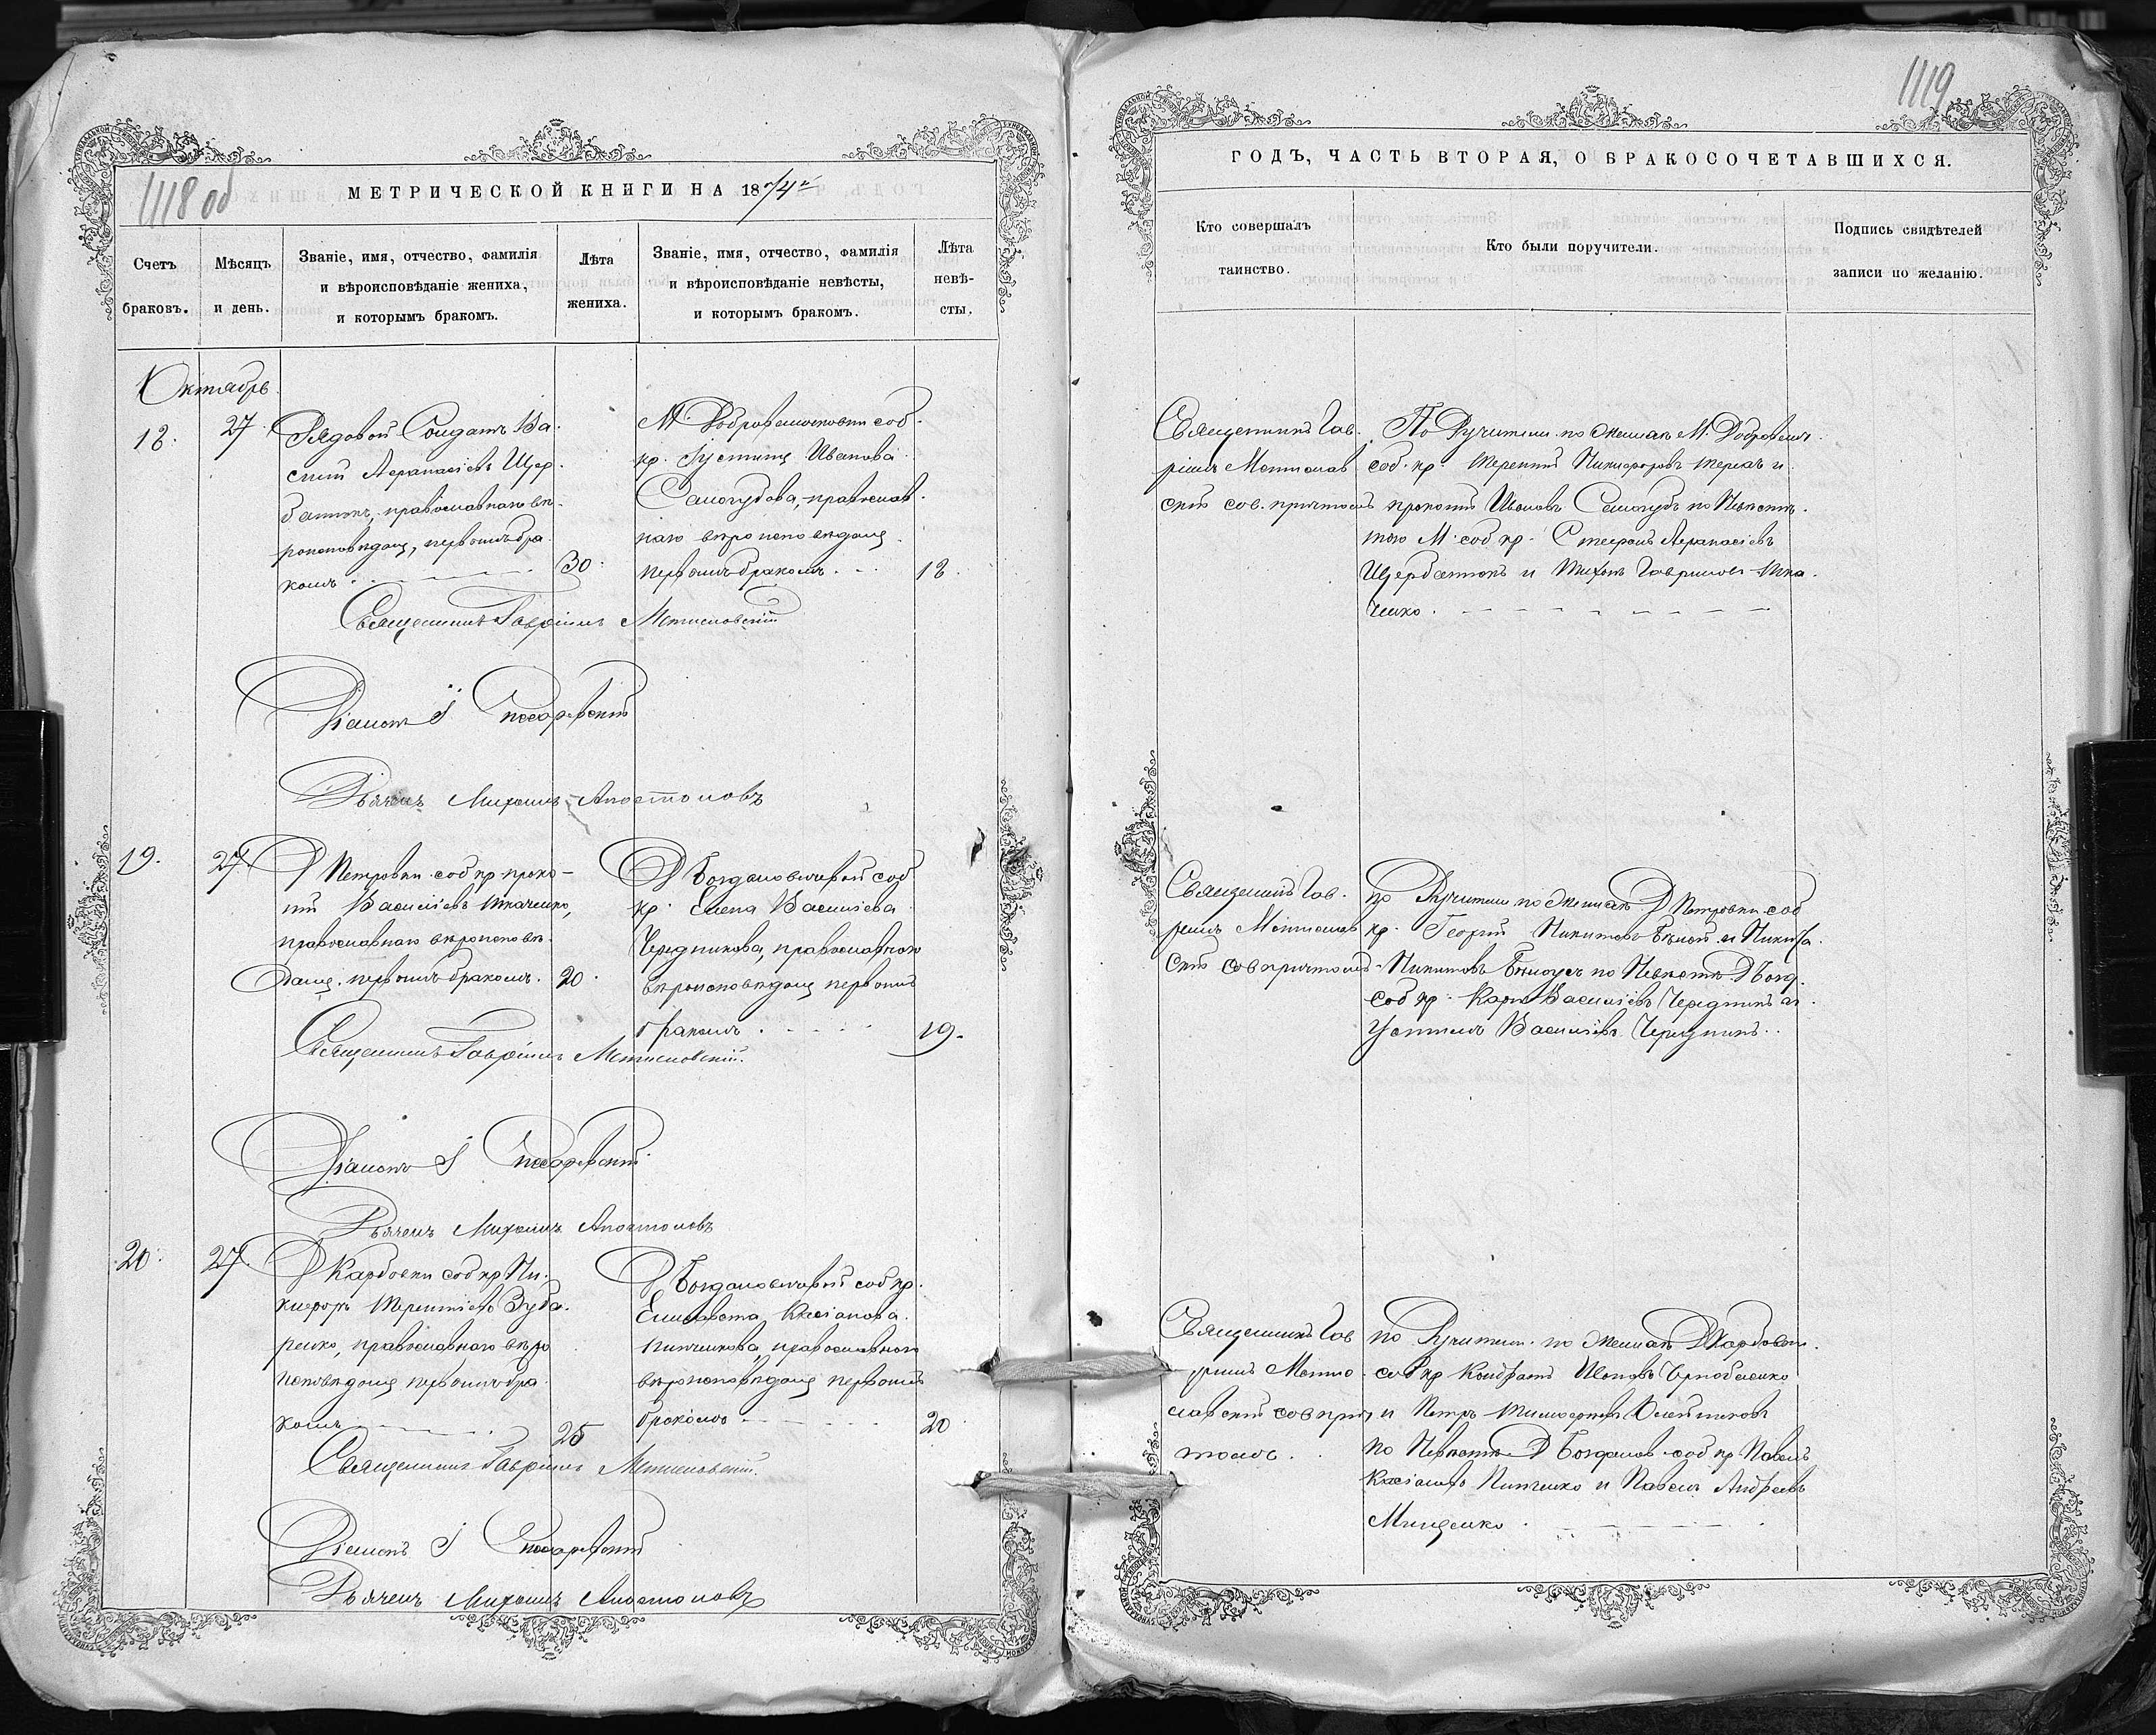 1118 об
МЕТРИЧЕСКОЙ КНИГИ НА 1874й
Счетъ браковъ.
Мѣсяцъ и день.
Званіе, имя, отчество, фамилія
и вѣроисповѣданіе жениха,
и которымъ бракомъ.
Лѣта жениха.
Званіе, имя, отчество, фамилія
и вѣроисповѣданіе невѣсты,
и которымъ бракомъ.
Лѣта невѣ-
сты.
Октябрь
18.
27.
Рядовой Солдатъ Ва-
силій Аѳанасіевъ Щер-
батюкъ, православнаго вѣ-
роисповѣданія, первымъ бра-
комъ
30
М. соб.
кр. Іустина Иванова
Самогубова, православ-
наго вѣроисповѣданія
первымъ бракомъ
18
Священникъ Гавріилъ Мстиславскій
Діаконъ І
Дьячекъ Михаилъ Апостоловъ
19.
27.
Д Петровки соб кр Проко-
пій Василіевъ Ткаченко,
православнаго вѣроисповѣ-
данія первымъ бракомъ
20
Д Богдановичевой соб
кр. Елена Василіева
Чередникова, православнаго
вѣроисповѣданія первымъ
бракомъ
19.
Священникъ Гавріилъ Мстиславскій.
Діаконъ І
Дьячекъ Михаилъ Апостоловъ
20.
27.
Д Карбовки соб кр Ни-
кифоръ Терентіевъ Зуба-
ренко, православнаго вѣро
исповѣданія первымъ бра
комъ
25
Д Богдановичевой соб кр.
Елисавета Касіанова
православнаго
вѣроисповѣданія первымъ
бракомъ
20
Священникъ Гавріилъ Мстиславскій.
Діаконъ І
Дьячекъ Михаилъ Апостоловъ
1119
ГОДЪ, ЧАСТЬ ВТОРАЯ, О БРАКОСОЧЕТАВШИХСЯ.
Кто совершалъ
таинство.
Кто были поручители.
Подпись свидѣтелей
записи по желанію.
Священникъ Гав-
ріилъ Мстислав
скій сов. причтомъ
По Ручители по Женихѣ М.
соб. кр. Терентій Никифоровъ и
Прокопій Ивановъ Самогубъ по Невѣстѣ
М. соб кр. Стефанъ Аѳанасіевъ
Щербатюкъ и Тихонъ Гавриловъ Тка-
ченко
Священникъ Гав-
ріилъ Мстислав
скій сов причтомъ
по Ручители по Женихѣ Д Петровки соб
кр. Георгій Никитовъ и Никита
Никитовъ Бѣлоусъ по Невѣстѣ Д Богд.
соб кр. Карпъ Василіевъ Чередникъ и
Василіевъ Чередникъ
Священникъ Гав
ріилъ Мстис-
лавскій сов прич
томъ.
по Ручители по Женихѣ Д Карбовки
соб кр Кондратъ Ивановъ
и Петръ Тимофеевъ
по Невѣстѣ Д Богданов соб кр Павелъ
Касіановъ и Павелъ Андреевъ
Мищенко